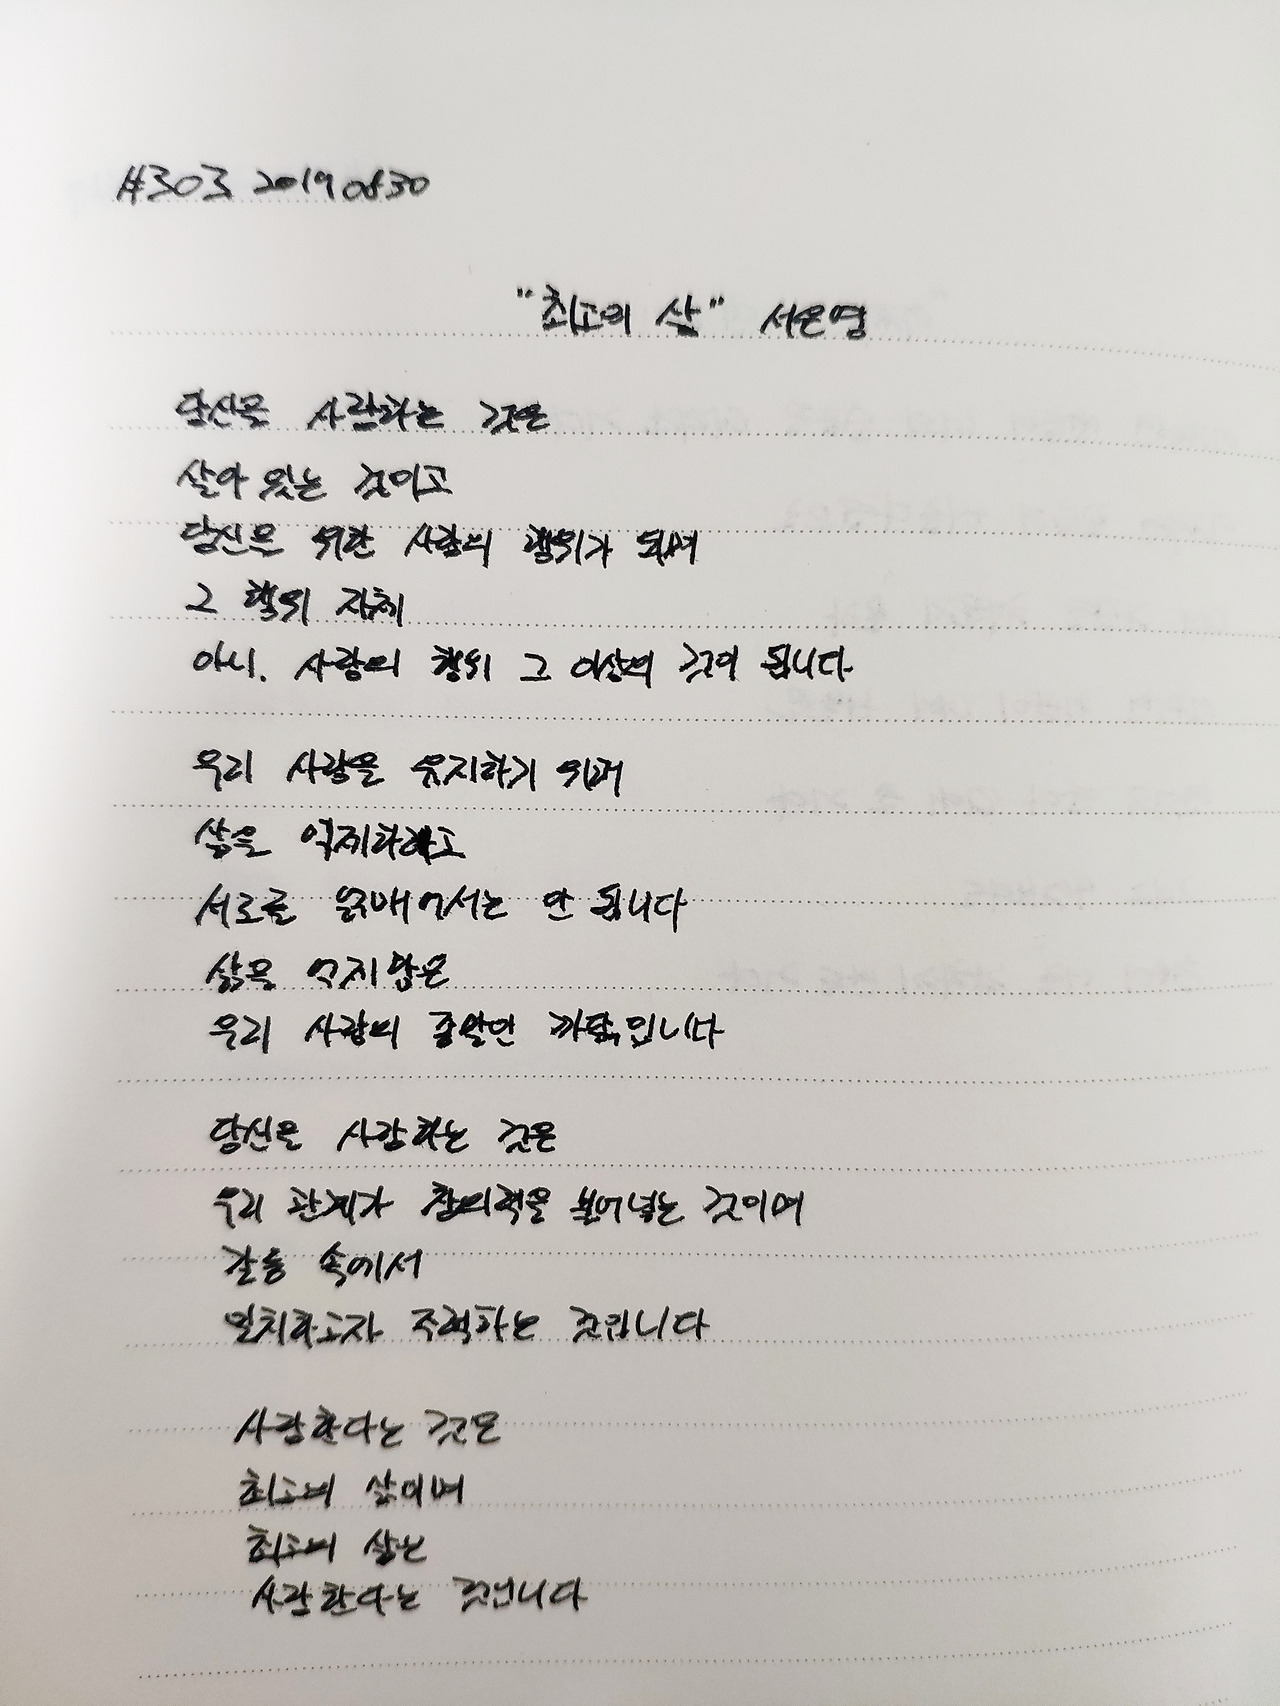 #303 2019 08 30
"최고의 삶" 서은영
당신을 사랑하는 것은
살아 있는 것이고
당신을 위한 사랑의 행위가 되며
그 행위 자체
아니, 사랑의 행위 그 이상의 것이 됩니다
우리 사랑을 유지하기 위해
삶을 억제하려고
서로를 얽매어서는 안 됩니다
삶을 억지않은
우리 사랑의 종말인 까닭입니다
당신을 사랑하는 것은
우리 관계가 창의력을 불어넣는 것이며
갈등 속에서
일치하고자 주력하는 것입니다
사랑한다는 것은
최고의 삶이며
최고의 삶은
사랑한다는 것입니다